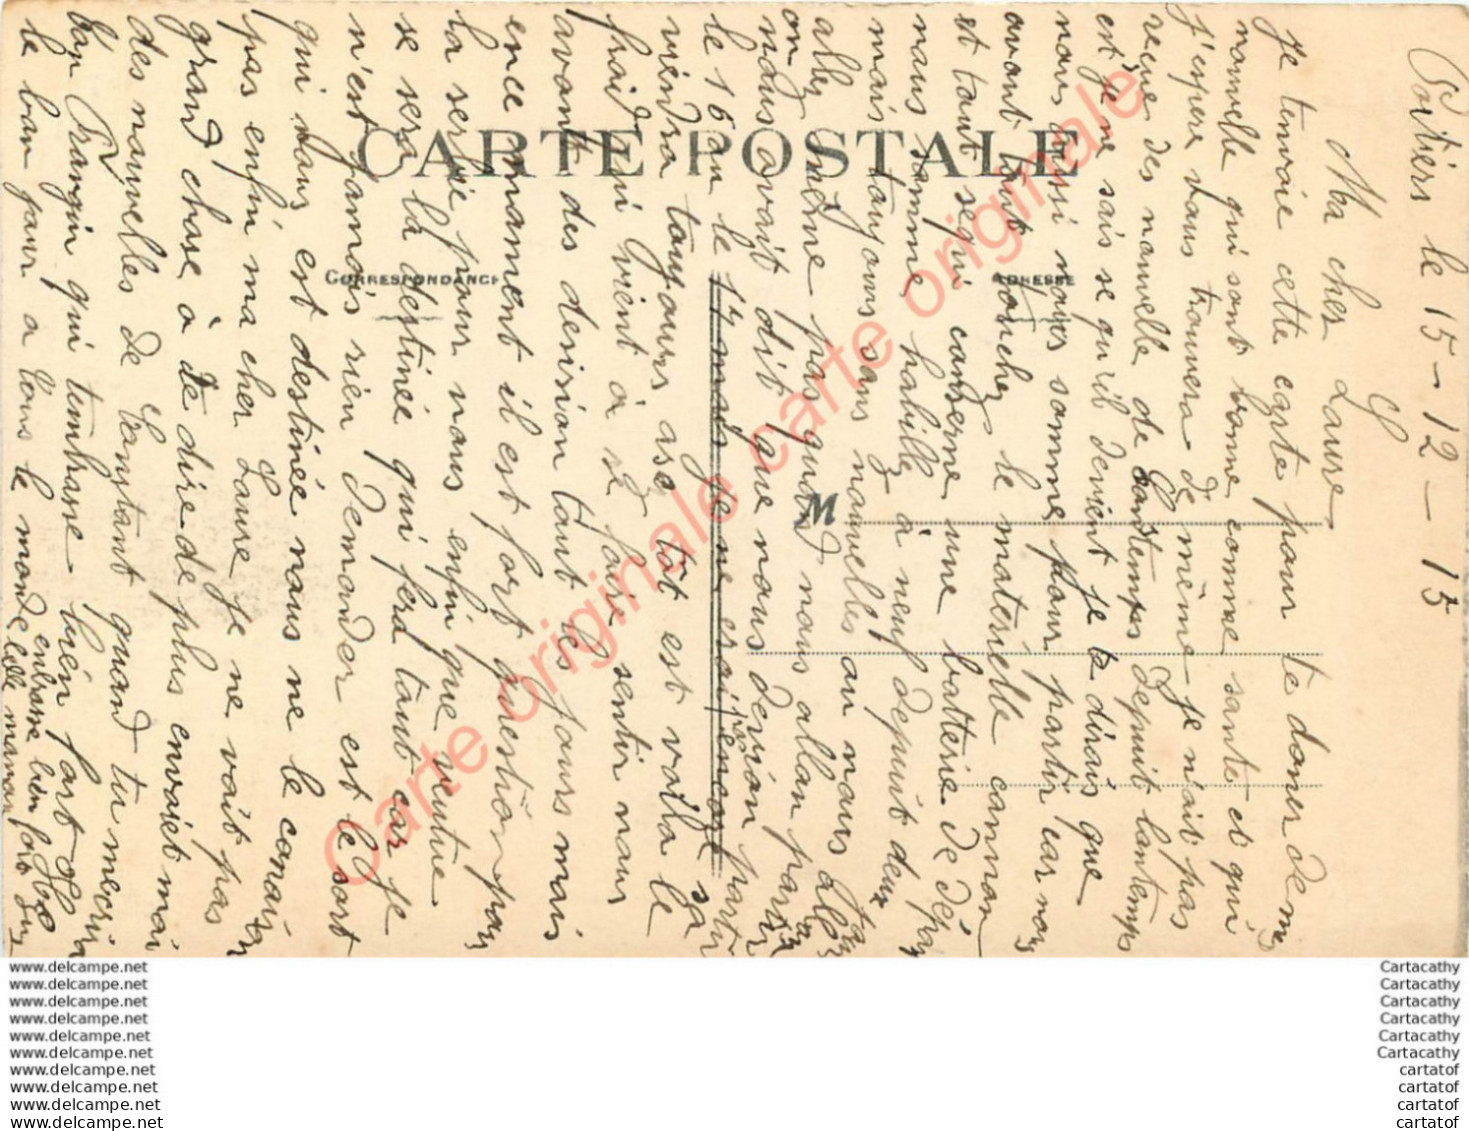 Poitiers le 15-12-15
Ma cher Laure
Je t'envoie cette carte pour te donner de mes
nouvelle qui sont bonne comme santé et qui
j'espère vous trouvera de même je n'ait pas
recue des nouvelle de depuit lontemps
est je ne sais se qu'il devient je te dirais que
nous aussi nous sommes pour partir car nous
avont tout toucher le matérielle cannon
est tout se qui conserne une batterie de dépar
nous somme habille a neuf depuit deux jours
mais toujours sans nouvelles au nous
allez même pas quand nous allon partir
on nous avait dit que nous devion partir
le 16 ou le 17 mais je ne crai pas encore sa
viendra toujours asé tôt est voila le
froid qui vient à se faire sentir nous
avont des désision tout les jours mais
ence moment il est fort question pour
la serbie pour nous enfin que veutue
se sera la destinée qui fera tout car je
n'est jamais rien demander est le sort
qui nous est destinée nous ne le conaison
pas enfin ma cher Laure je ne voit pas
grand chose à te dire de plus envoiet moi
des nouvelles de Constant quand tu mecrira
ton Frangin qui t'embrasse bien fort
le bonjour a tous le monde
embrasse bien fort
CARTE POSTALE
CORRESPONDANCE
ADRESSE
M
Carte originale carte originale carte originale
www.delcampe.net
www.delcampe.net
www.delcampe.net
www.delcampe.net
www.delcampe.net
www.delcampe.net
www.delcampe.net
www.delcampe.net
www.delcampe.net
www.delcampe.net
Cartacathy
Cartacathy
Cartacathy
Cartacathy
Cartacathy
Cartacathy
cartatof
cartatof
cartatof
cartatof